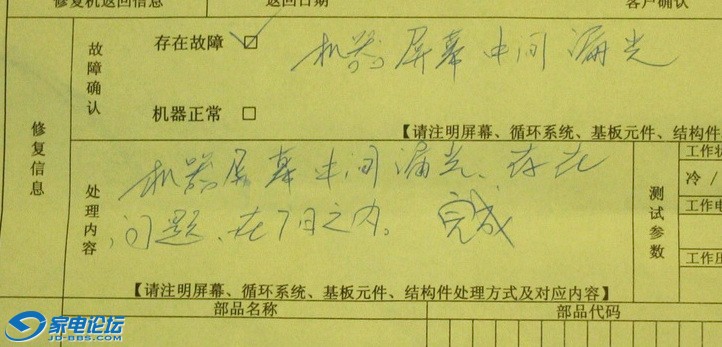 修复机返回信息 返回日期 客户确认
修复信息
故障确认
存在故障 ☑ 机器屏幕中间漏光
机器正常 □
【请注明屏幕、循环系统、基板元件、结构件
处理内容
机器屏幕中间漏光、存在
问题、在7日之内。完成
【请注明屏幕、循环系统、基板元件、结构件处理方式及对应内容】
测试参数
工作状
冷/
工作电
工作压
部品名称 部品代码
家电论坛
JD-BBS.COM